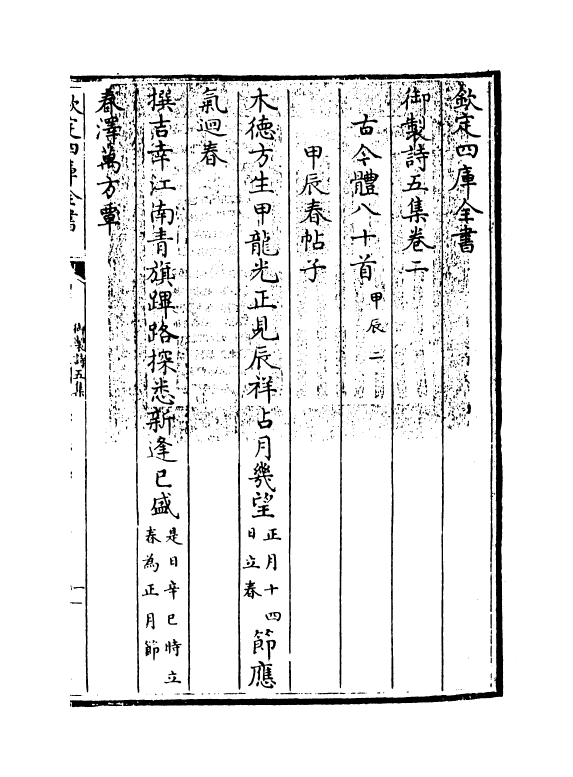 欽定四庫全書
御製詩五集卷二
古今體八十首甲辰二
甲辰春帖子
木德方生甲龍光正見辰祥占月幾望正月十四日立春節應
氣迴春
撰吉幸江南青旗蹕路探悉新逢巳盛是日辛巳時立春為正月節
春澤萬方覃
欽定四庫全書
御製詩五集